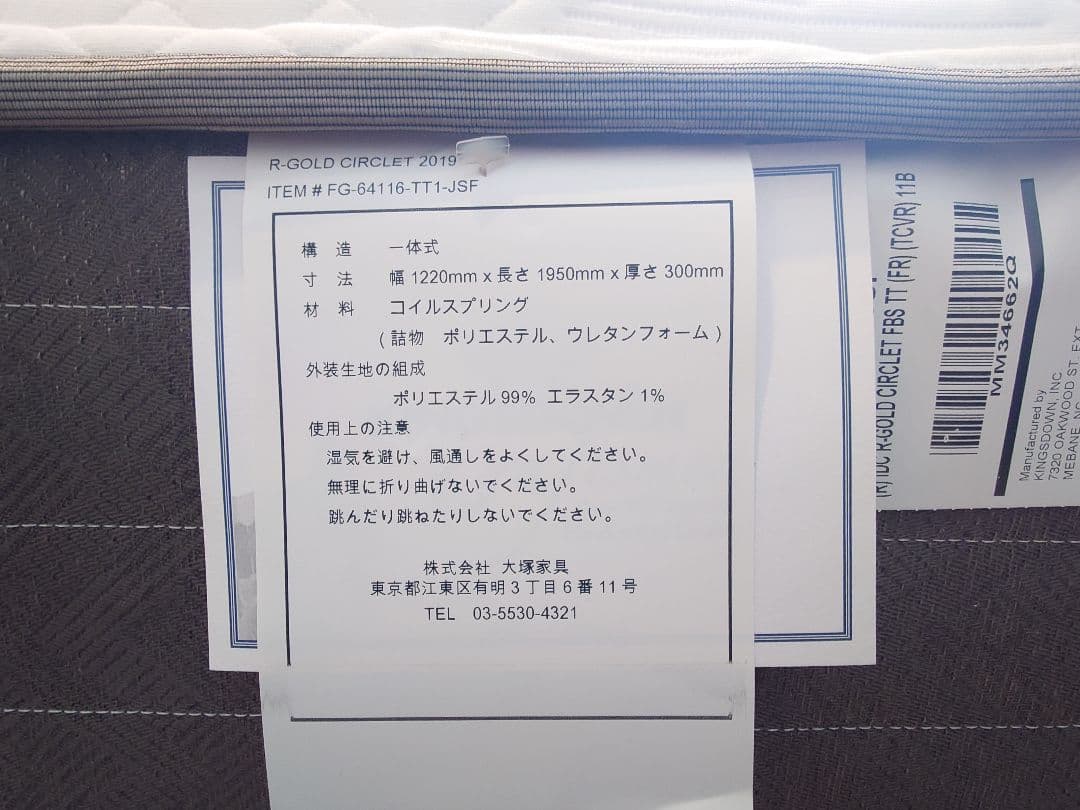 R-GOLD CIRCLET 2019
ITEM # FG-64116-TT1-JSF
構 造 一体式
寸 法 幅 1220mm x 長さ 1950mm x 厚さ 300mm
材 料 コイルスプリング
( 詰物 ポリエステル、ウレタンフォーム )
外装生地の組成
ポリエステル 99% エラスタン 1%
使用上の注意
湿気を避け、風通しをよくしてください。
無理に折り曲げないでください。
跳んだり跳ねたりしないでください。
株式会社 大塚家具
東京都江東区有明 3 丁目 6 番 11 号
TEL 03-5530-4321
(R) DC R-GOLD CIRCLET FBS TT (FR) (TCVR) 11B
MM346662Q
Manufactured by
KINGSDOWN, INC
7320 OAKWOOD ST. EXT
MEBANE, NC